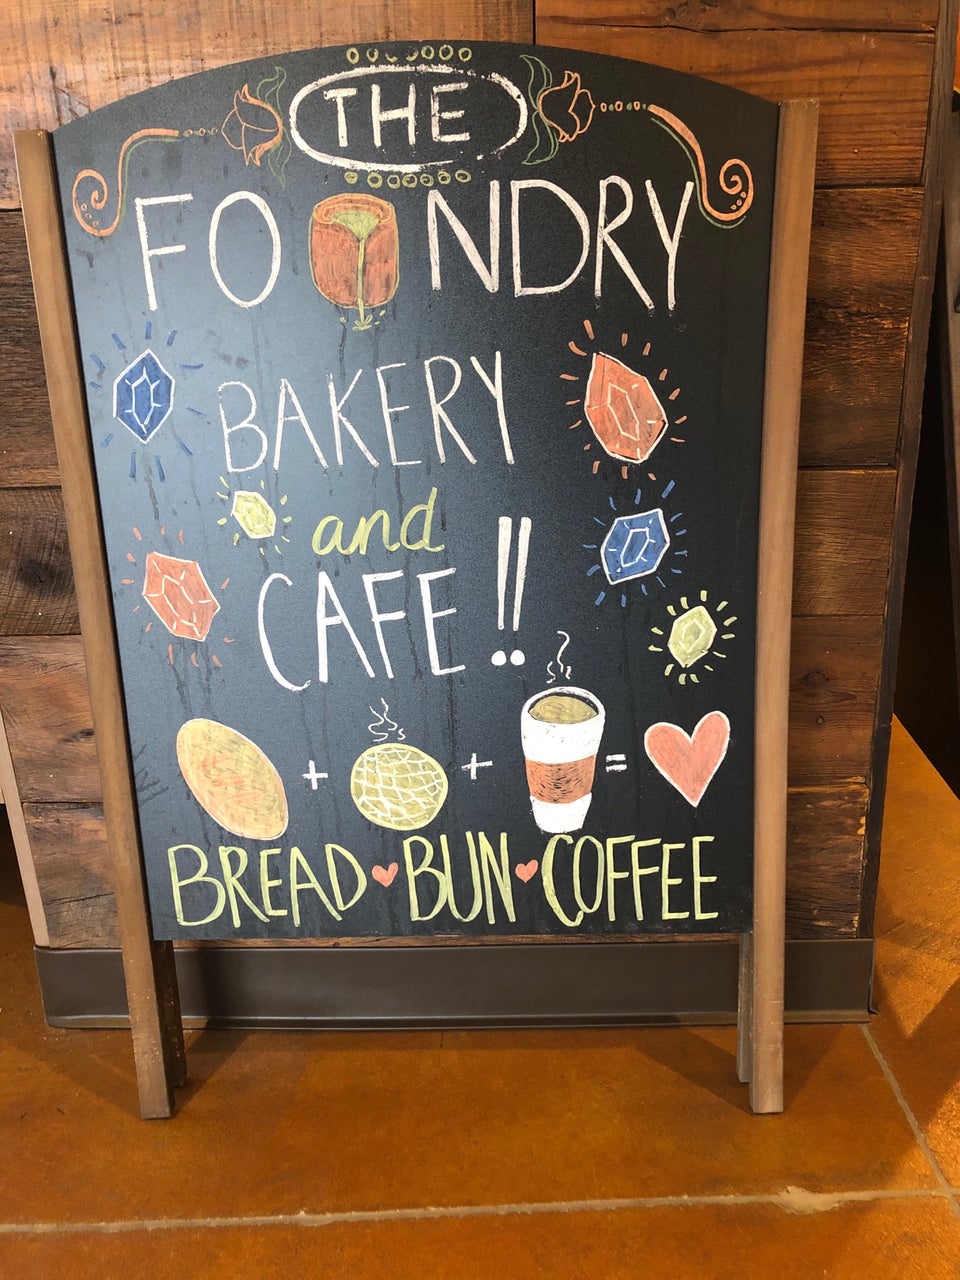 THE
FOUNDRY
BAKERY
and
CAFE!!
+ + =
BREAD BUN COFFEE